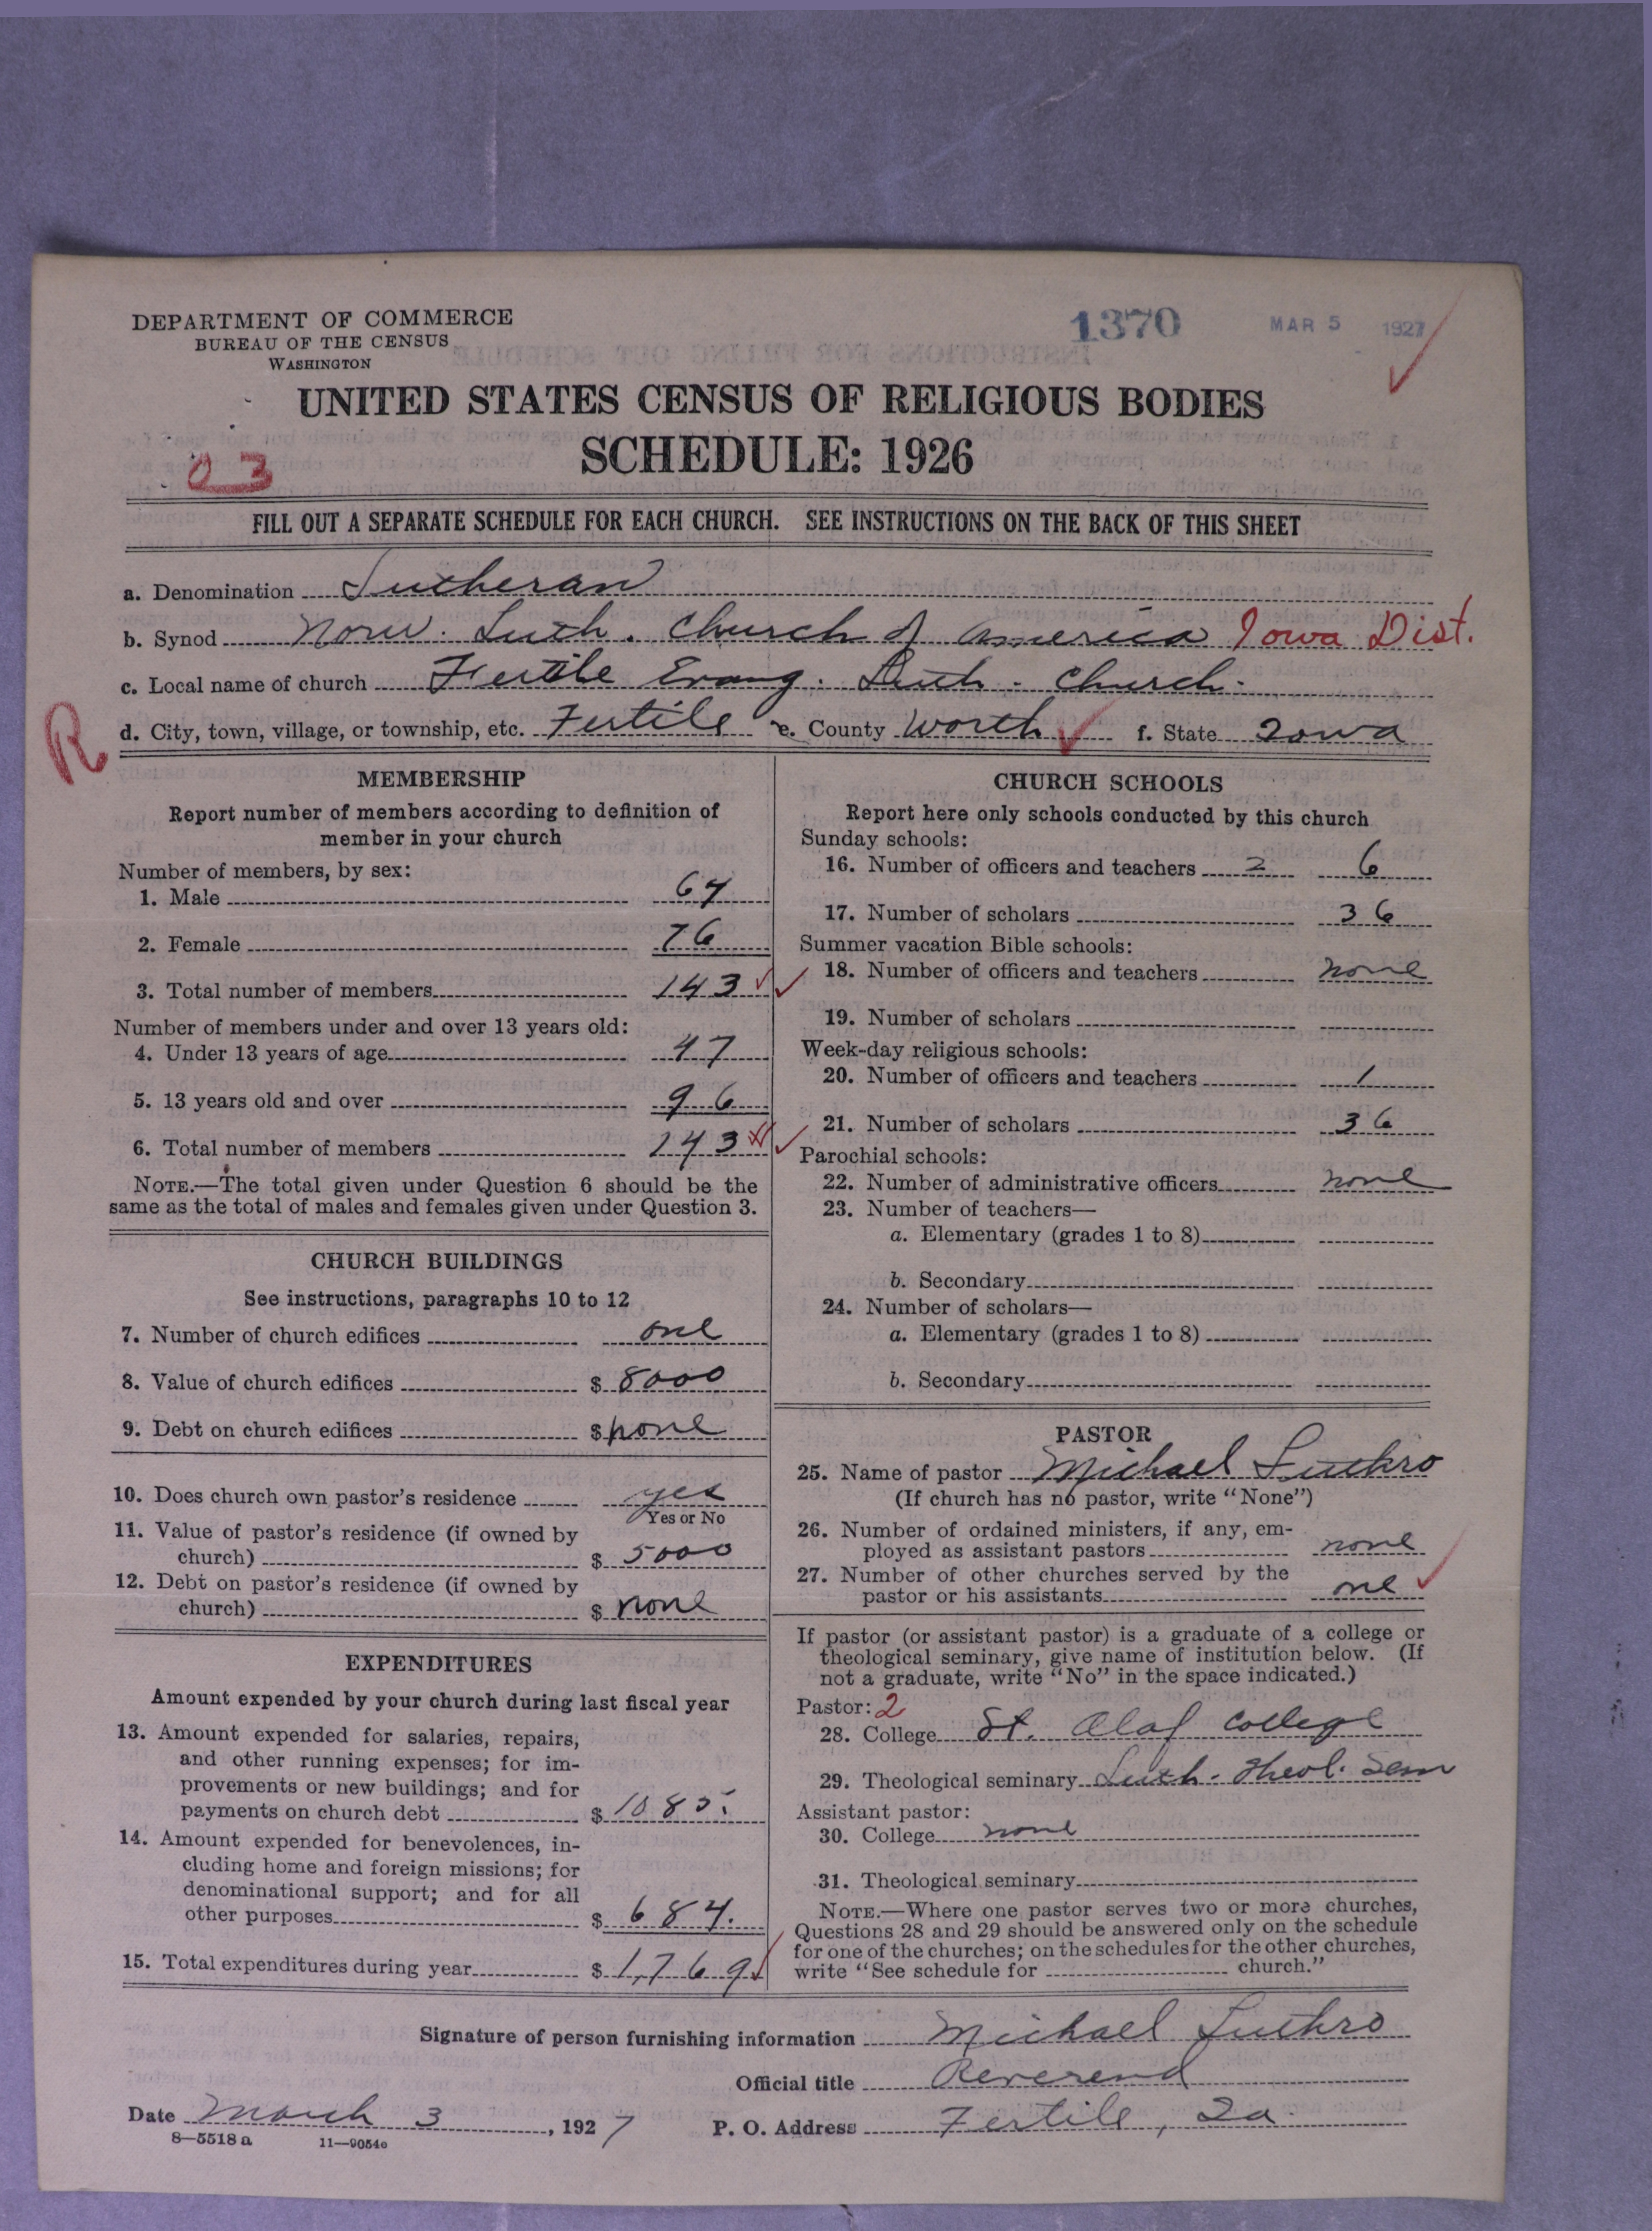 DEPARTMENT OF COMMERCE
BUREAU OF THE CENSUS
WASHINGTON
1370
MAR 5 1927
UNITED STATES CENSUS OF RELIGIOUS BODIES
SCHEDULE: 1926
03
FILL OUT A SEPARATE SCHEDULE FOR EACH CHURCH. SEE INSTRUCTIONS ON THE BACK OF THIS SHEET
a. Denomination Lutheran
b. Synod Norw. Luth. Church of America Iowa Dist.
c. Local name of church Fertile Evang. Luth. Church.
R
d. City, town, village, or township, etc. Fertile e. County Worth f. State Iowa
MEMBERSHIP
Report number of members according to definition of
member in your church
Number of members, by sex:
1. Male 67
2. Female 76
3. Total number of members 143
Number of members under and over 13 years old:
4. Under 13 years of age 47
5. 13 years old and over 96
6. Total number of members 143
NOTE.—The total given under Question 6 should be the
same as the total of males and females given under Question 3.
CHURCH BUILDINGS
See instructions, paragraphs 10 to 12
7. Number of church edifices one
8. Value of church edifices $ 8000
9. Debt on church edifices $ none
10. Does church own pastor's residence yes
Yes or No
11. Value of pastor's residence (if owned by
church) $ 5000
12. Debt on pastor's residence (if owned by
church) $ none
EXPENDITURES
Amount expended by your church during last fiscal year
13. Amount expended for salaries, repairs,
and other running expenses; for im-
provements or new buildings; and for
payments on church debt $ 1085.
14. Amount expended for benevolences, in-
cluding home and foreign missions; for
denominational support; and for all
other purposes $ 684.
15. Total expenditures during year $ 1,769
CHURCH SCHOOLS
Report here only schools conducted by this church
Sunday schools:
16. Number of officers and teachers 2 6
17. Number of scholars 36
Summer vacation Bible schools:
18. Number of officers and teachers none
19. Number of scholars
Week-day religious schools:
20. Number of officers and teachers 1
21. Number of scholars 36
Parochial schools:
22. Number of administrative officers none
23. Number of teachers—
a. Elementary (grades 1 to 8)
b. Secondary
24. Number of scholars—
a. Elementary (grades 1 to 8)
b. Secondary
PASTOR
25. Name of pastor Michael Luthro
(If church has no pastor, write "None")
26. Number of ordained ministers, if any, em-
ployed as assistant pastors none
27. Number of other churches served by the
pastor or his assistants one
If pastor (or assistant pastor) is a graduate of a college or
theological seminary, give name of institution below. (If
not a graduate, write "No" in the space indicated.)
Pastor: 2
28. College St. Olaf College
29. Theological seminary Luth. Theol. Sem
Assistant pastor:
30. College none
31. Theological seminary
NOTE.—Where one pastor serves two or more churches,
Questions 28 and 29 should be answered only on the schedule
for one of the churches; on the schedules for the other churches,
write "See schedule for church."
Signature of person furnishing information Michael Luthro
Official title Reverend
Date March 3, 1927 P. O. Address Fertile, Ia.
8—5518 a 11—9054c